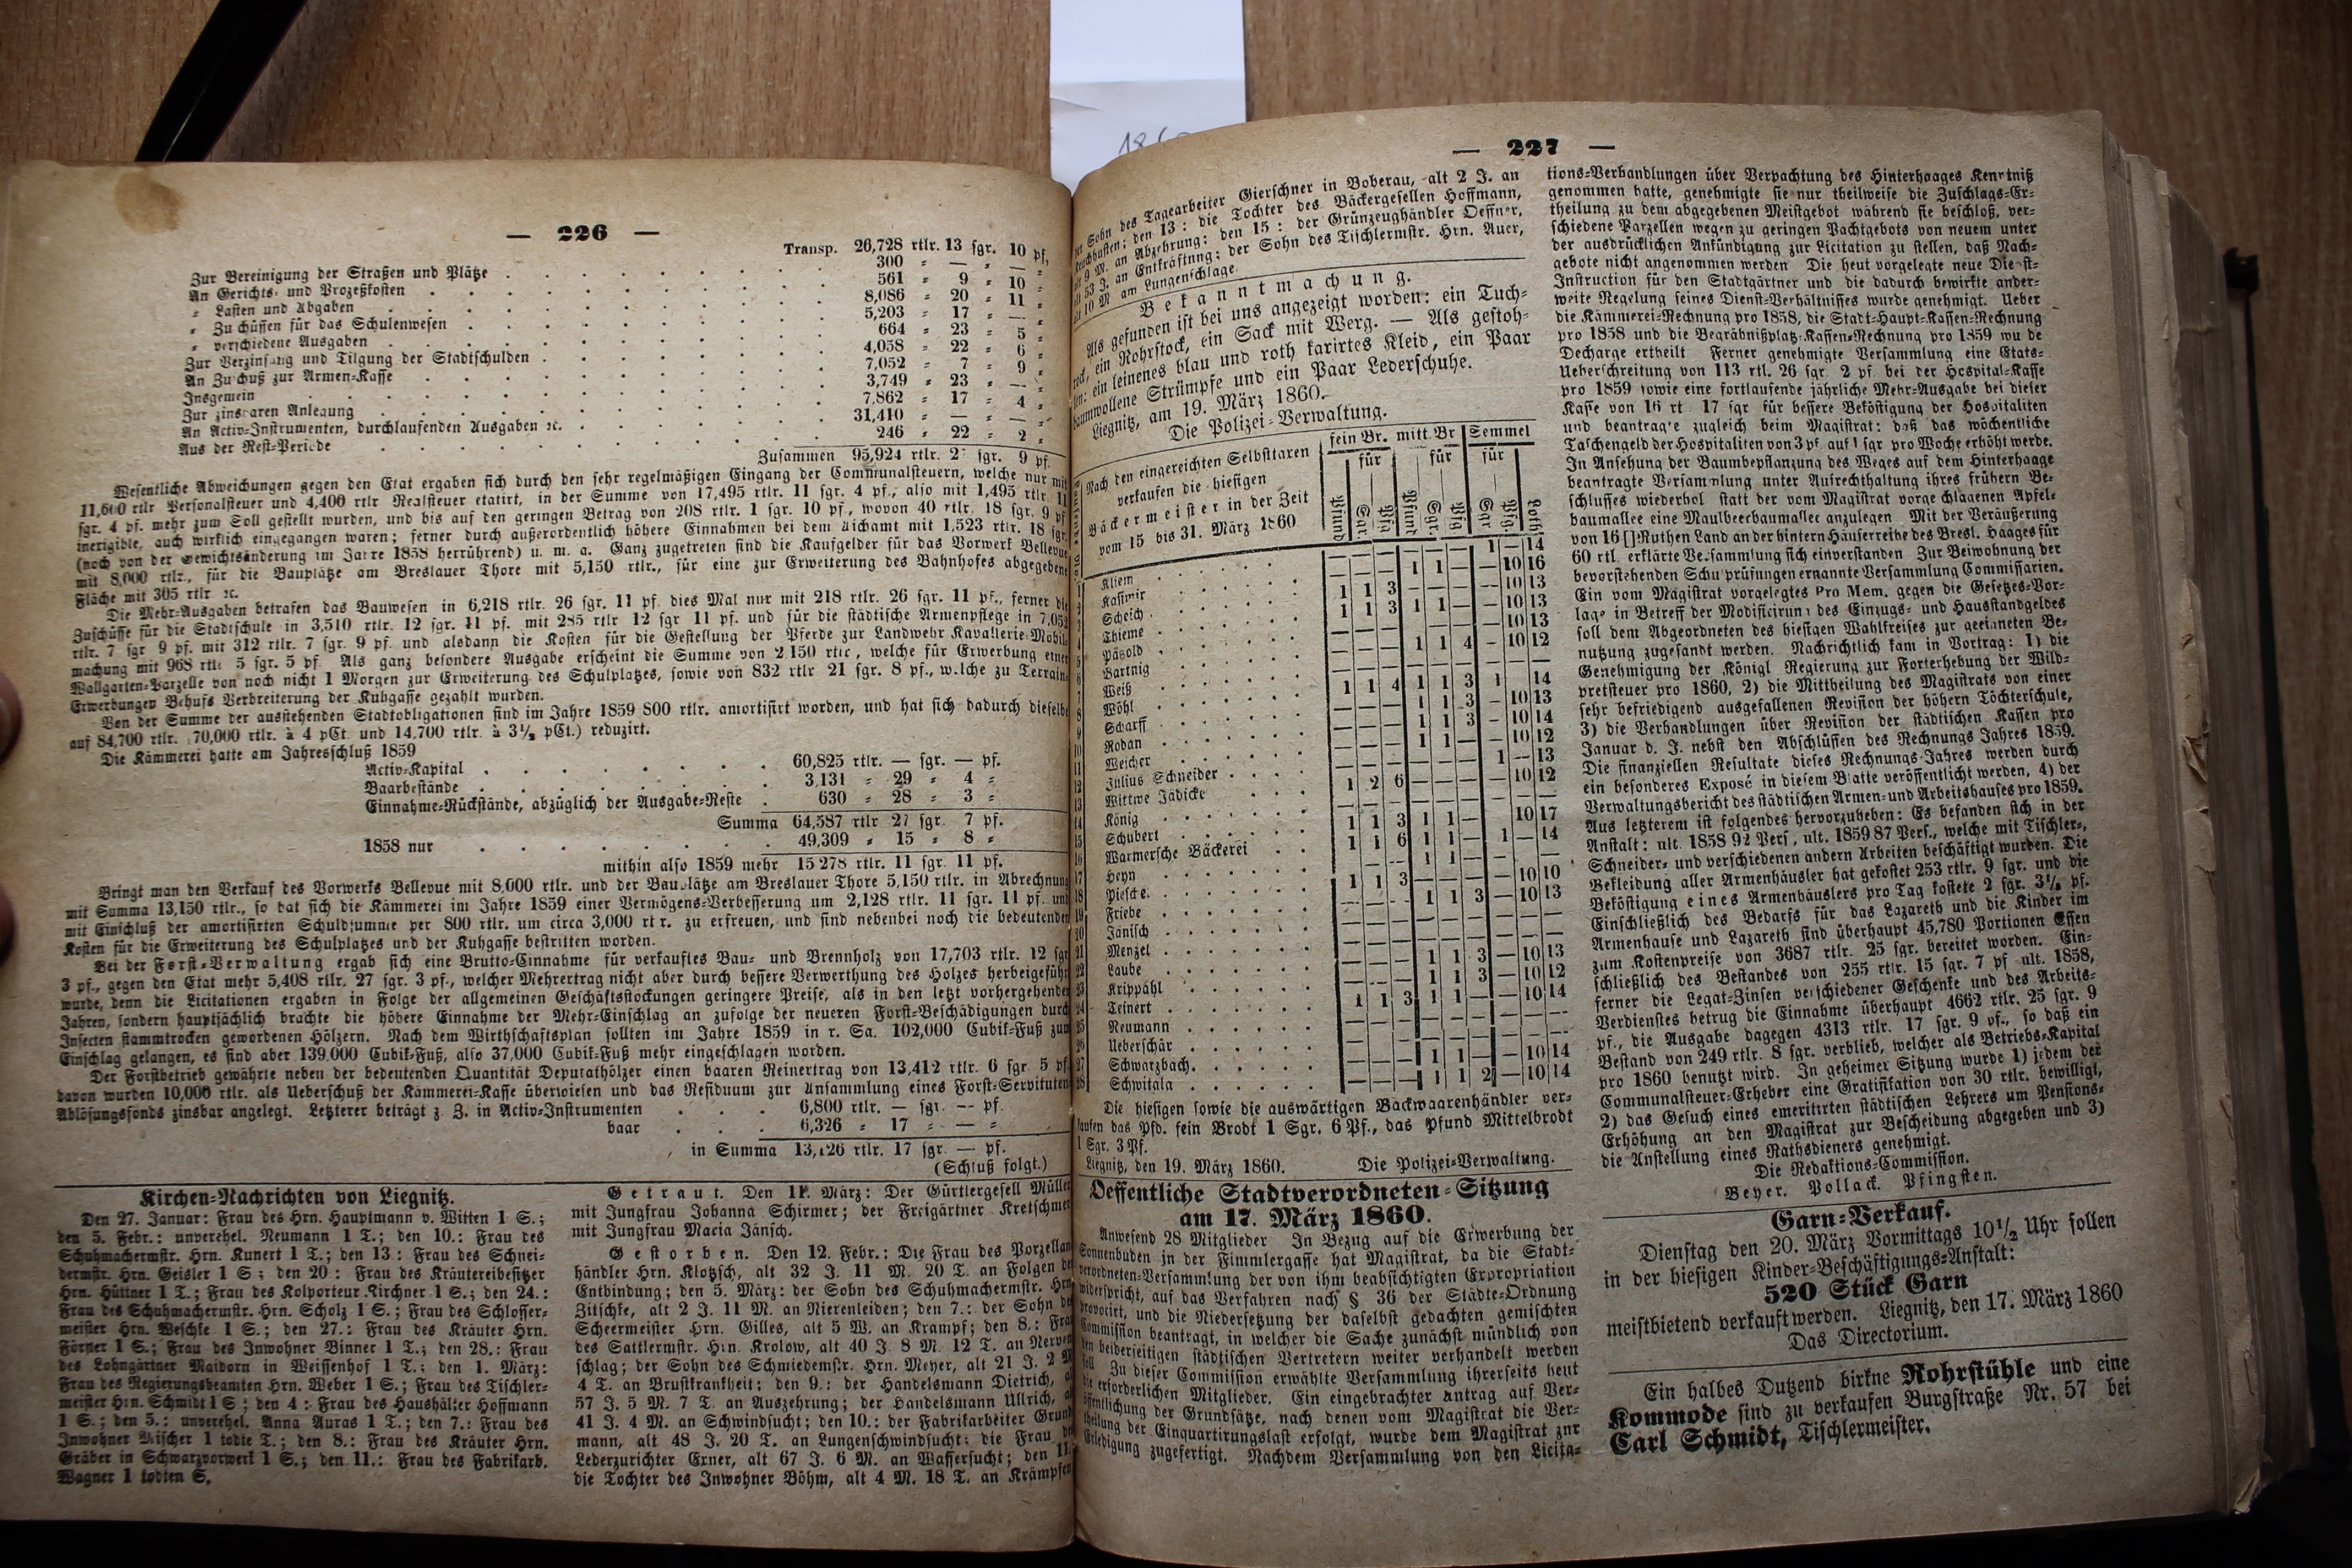 — 226 —
Transp. 26,728 rtlr. 13 sgr. 10 pf,
Zur Bereinigung der Straßen und Plätze . . . 300 = — = — =
An Gerichts- und Prozeßkosten . . . 561 = 9 = 10 =
= Lasten und Abgaben . . . 8,086 = 20 = 11 =
= Zuschüssen für das Schulenwesen . . . 5,203 = 17 = — =
= verschiedene Ausgaben . . . 664 = 23 = 5 =
Zur Verzinsung und Tilgung der Stadtschulden . . . 4,058 = 22 = 6 =
An Zuschuß zur Armen-Kasse . . . 7,052 = 7 = 9 =
Insgemein . . . 3,749 = 23 = — =
Zur zinsbaren Anlegung . . . 7,862 = 17 = 4 =
An Activ-Instrumenten, durchlaufenden Ausgaben ꝛc. . . . 31,410 = — = — =
Aus der Rest-Periode . . . 246 = 22 = 2 =
Zusammen 95,924 rtlr. 2 sgr. 9 pf.
Wesentliche Abweichungen gegen den Etat ergaben sich durch den sehr regelmäßigen Eingang der Communalsteuern, welche nur mit
11,600 rtlr Personalsteuer und 4,400 rtlr Realsteuer etatirt, in der Summe von 17,495 rtlr. 11 sgr. 4 pf., also mit 1,495 rtlr. 11
sgr. 4 pf. mehr zum Soll gestellt wurden, und bis auf den geringen Betrag von 208 rtlr. 1 sgr. 10 pf., wovon 40 rtlr. 18 sgr. 9 pf
inexigible, auch wirklich eingegangen waren; ferner durch außerordentlich höhere Einnahmen bei dem Aichamt mit 1,523 rtlr. 18 sgr.
(noch von der Gewichtsänderung im Jahre 1858 herrührend) u. m. a. Ganz zugetreten sind die Kaufgelder für das Vorwerk Bellevue
mit 8,000 rtlr., für die Bauplätze am Breslauer Thore mit 5,150 rtlr., für eine zur Erweiterung des Bahnhofes abgegebene
Fläche mit 305 rtlr ꝛc.
Die Mehr-Ausgaben betrafen das Bauwesen in 6,218 rtlr. 26 sgr. 11 pf. dies Mal nur mit 218 rtlr. 26 sgr. 11 pf., ferner die
Zuschüsse für die Stadtschule in 3,510 rtlr. 12 sgr. 11 pf. mit 285 rtlr 12 sgr 11 pf. und für die städtische Armenpflege in 7,052
rtlr. 7 sgr 9 pf. mit 312 rtlr. 7 sgr. 9 pf und alsdann die Kosten für die Gestellung der Pferde zur Landwehr Kavallerie-Mobil-
machung mit 968 rtlr 5 sgr. 5 pf Als ganz besondere Ausgabe erscheint die Summe von 2,150 rtlr, welche für Erwerbung einer
Wallgarten-Parzelle von noch nicht 1 Morgen zur Erweiterung des Schulplatzes, sowie von 832 rtlr 21 sgr. 8 pf., welche zu Terrain-
Erwerbungen Behufs Verbreiterung der Kuhgasse gezahlt wurden.
Von der Summe der ausstehenden Stadtobligationen sind im Jahre 1859 800 rtlr. amortisirt worden, und hat sich dadurch dieselbe
auf 84,700 rtlr. (70,000 rtlr. à 4 pCt. und 14,700 rtlr. à 3½ pCt.) reduzirt.
Die Kämmerei hatte am Jahresschluß 1859
Activ-Kapital . . . 60,825 rtlr. — sgr. — pf.
Baarbestände . . . 3,131 = 29 = 4 =
Einnahme-Rückstände, abzüglich der Ausgabe-Reste . 630 = 28 = 3 =
Summa 64,587 rtlr 27 sgr. 7 pf.
1858 nur . . . 49,309 = 15 = 8 =
mithin also 1859 mehr 15,278 rtlr. 11 sgr. 11 pf.
Bringt man den Verkauf des Vorwerks Bellevue mit 8,000 rtlr. und der Bauplätze am Breslauer Thore 5,150 rtlr. in Abrechnung
mit Summa 13,150 rtlr., so hat sich die Kämmerei im Jahre 1859 einer Vermögens-Verbesserung um 2,128 rtlr. 11 sgr. 11 pf. und
mit Einschluß der amortisirten Schuldsumme per 800 rtlr. um circa 3,000 rtlr. zu erfreuen, und sind nebenbei noch die bedeutenden
Kosten für die Erweiterung des Schulplatzes und der Kuhgasse bestritten worden.
Bei der Forst-Verwaltung ergab sich eine Brutto-Einnahme für verkauftes Bau- und Brennholz von 17,703 rtlr. 12 sgr
3 pf., gegen den Etat mehr 5,408 rtlr. 27 sgr. 3 pf., welcher Mehrertrag nicht aber durch bessere Verwerthung des Holzes herbeigeführt
wurde, denn die Licitationen ergaben in Folge der allgemeinen Geschäftsstockungen geringere Preise, als in den letzt vorhergehenden
Jahren, sondern hauptsächlich brachte die höhere Einnahme der Mehr-Einschlag an zufolge der neueren Forst-Beschädigungen durch
Insecten stammtrocken gewordenen Hölzern. Nach dem Wirthschaftsplan sollten im Jahre 1859 in r. Sa. 102,000 Cubik-Fuß zum
Einschlag gelangen, es sind aber 139,000 Cubik-Fuß, also 37,000 Cubik-Fuß mehr eingeschlagen worden.
Der Forstbetrieb gewährte neben der bedeutenden Quantität Deputathölzer einen baaren Reinertrag von 13,412 rtlr. 6 sgr 5 pf.
davon wurden 10,000 rtlr. als Ueberschuß der Kämmerei-Kasse überwiesen und das Residuum zur Ansammlung eines Forst-Servituten-
Ablösungsfonds zinsbar angelegt. Letzterer beträgt z. Z. in Activ-Instrumenten . . . 6,800 rtlr. — sgr. — pf.
baar . . . 6,326 = 17 = — =
in Summa 13,126 rtlr. 17 sgr. — pf.
(Schluß folgt.)
Kirchen-Nachrichten von Liegnitz.
Den 27. Januar: Frau des Hrn. Hauptmann v. Witten 1 S.;
den 5. Febr.: unverehel. Neumann 1 T.; den 10.: Frau des
Schuhmachermstr. Hrn. Kunert 1 T.; den 13: Frau des Schnei-
dermstr. Hrn. Geisler 1 S; den 20: Frau des Kräutereibesitzer
Hrn. Hüttner 1 T.; Frau des Kolporteur Kirchner 1 S.; den 24.:
Frau des Schuhmachermstr. Hrn. Scholz 1 S.; Frau des Schlosser-
meister Hrn. Weschke 1 S.; den 27.: Frau des Kräuter Hrn.
Förner 1 S.; Frau des Inwohner Binner 1 T.; den 28.: Frau
des Lohngärtner Maidorn in Weissenhof 1 T.; den 1. März:
Frau des Regierungsbeamten Hrn. Weber 1 S.; Frau des Tischler-
meister Hrn. Schmidt 1 S; den 4: Frau des Haushälter Hoffmann
1 S.; den 5.: unverehel. Anna Auras 1 T.; den 7.: Frau des
Inwohner Discher 1 todte T.; den 8.: Frau des Kräuter Hrn.
Gräber in Schwarzvorwerk 1 S.; den 11.: Frau des Fabrikarb.
Wagner 1 todten S.
Getraut. Den 11. März: Der Gürtlergesell Müller
mit Jungfrau Johanna Schirmer; der Freigärtner Kretschmer
mit Jungfrau Maria Jänsch.
Gestorben. Den 12. Febr.: Die Frau des Porzellan-
händler Hrn. Klotzsch, alt 32 J. 11 M. 20 T. an Folgen der
Entbindung; den 5. März: der Sohn des Schuhmachermstr. Hrn.
Zitschke, alt 2 J. 11 M. an Nierenleiden; den 7.: der Sohn des
Scheermeister Hrn. Gilles, alt 5 W. an Krampf; den 8.: Frau
des Sattlermstr. Hrn. Krolow, alt 40 J. 8 M. 12 T. an Nerven-
schlag; der Sohn des Schmiedemstr. Hrn. Meyer, alt 21 J. 2 M
4 T. an Brustkrankheit; den 9.: der Handelsmann Dietrich, alt
57 J. 5 M. 7 T. an Auszehrung; der Handelsmann Ullrich, alt
41 J. 4 M. an Schwindsucht; den 10.: der Fabrikarbeiter Grund-
mann, alt 48 J. 20 T. an Lungenschwindsucht; die Frau des
Lederzurichter Exner, alt 67 J. 6 M. an Wassersucht; den 11.
die Tochter des Inwohner Böhm, alt 4 M. 18 T. an Krämpfen
— 227 —
der Sohn des Tagearbeiter Gierschner in Boberau, alt 2 J. an
Keuchhusten; den 13: die Tochter des Bäckergesellen Hoffmann,
alt 9 M. an Abzehrung; den 15: der Grünzeughändler Oeffner,
alt 53 J. an Entkräftung; der Sohn des Tischlermstr. Hrn. Auer,
alt 10 M am Lungenschlage
Bekanntmachung.
Als gefunden ist bei uns angezeigt worden: ein Tuch-
rock, ein Rohrstock, ein Sack mit Werg. — Als gestoh-
len: ein leinenes blau und roth karirtes Kleid, ein Paar
baumwollene Strümpfe und ein Paar Lederschuhe.
Liegnitz, am 19. März 1860.
Die Polizei-Verwaltung.
Nach den eingereichten Selbsttaxen
verkaufen die hiesigen
Bäckermeister in der Zeit
vom 15 bis 31. März 1860
fein Br. mitt. Br Semmel
für für für
Pfund Sgr. Pfg Pfund Sgr. Pfg Sgr Pfg. Loth
1 Kliem . . . — — — — — — 1 — 14
2 Kasimir . . . — — — 1 1 — — 10 16
3 Scheich . . . 1 1 3 — — — — 10 13
4 Thieme . . . 1 1 3 1 1 — — 10 13
5 Pätzold . . . — — — — — — — 10 13
Bartnig . . . — — — 1 1 4 — 10 12
6 Weiß . . . — — — — — — — — —
7 Wöhl . . . 1 1 4 1 1 3 1 14
8 Scharff . . . — — — 1 1 3 — 10 13
9 Rodan . . . — — — 1 1 3 — 10 14
10 Weicher . . . — — — 1 1 — — 10 12
11 Julius Schneider . . . — — — — — — 1 — 13
12 Wittwe Jädicke . . . 1 2 6 — — — — 10 12
13 König . . . — — — — — — — — —
14 Schubert . . . 1 1 3 1 1 — 10 17
15 Warmersche Bäckerei . . . 1 1 6 1 1 — 1 — 14
16 Heyn . . . — — — 1 1 — — — —
17 Piesche. . . . 1 1 3 — — — — 10 10
18 Friebe . . . — — — 1 1 3 — 10 13
19 Jänisch . . . — — — — — — — — —
20 Menzel . . . — — — — — — — — —
21 Laube . . . — — — 1 1 3 — 10 13
22 Krippähl . . . — — — 1 1 3 — 10 12
23 Teinert . . . 1 1 3 1 1 — — 10 14
24 Neumann . . . — — — — — — — — —
25 Ueberschär . . . — — — — — — — — —
26 Schwarzbach. . . . — — — 1 1 — — 10 14
28 Schwitala . . . — — — 1 1 2 — 10 14
Die hiesigen sowie die auswärtigen Backwaarenhändler ver-
kaufen das Pfd. fein Brodt 1 Sgr. 6 Pf., das Pfund Mittelbrodt
1 Sgr. 3 Pf.
Liegnitz, den 19. März 1860. Die Polizei-Verwaltung.
Oeffentliche Stadtverordneten-Sitzung
am 17. März 1860.
Anwesend 28 Mitglieder In Bezug auf die Erwerbung der
Sonnenbuden in der Fimmlergasse hat Magistrat, da die Stadt-
verordneten-Versammlung der von ihm beabsichtigten Expropriation
widerspricht, auf das Verfahren nach § 36 der Städte-Ordnung
provocirt, und die Niedersetzung der daselbst gedachten gemischten
Commission beantragt, in welcher die Sache zunächst mündlich von
den beiderseitigen städtischen Vertretern weiter verhandelt werden
soll Zu dieser Commission erwählte Versammlung ihrerseits heut
die erforderlichen Mitglieder. Ein eingebrachter Antrag auf Ver-
öffentlichung der Grundsätze, nach denen vom Magistrat die Ver-
theilung der Einquartirungslast erfolgt, wurde dem Magistrat zur
Erledigung zugefertigt. Nachdem Versammlung von den Licita-
tions-Verhandlungen über Verpachtung des Hinterhaages Kenntniß
genommen hatte, genehmigte sie nur theilweise die Zuschlags-Er-
theilung zu dem abgegebenen Meistgebot während sie beschloß, ver-
schiedene Parzellen wegen zu geringen Pachtgebots von neuem unter
der ausdrücklichen Ankündigung zur Licitation zu stellen, daß Nach-
gebote nicht angenommen werden Die heut vorgelegte neue Dienst-
Instruction für den Stadtgärtner und die dadurch bewirkte ander-
weite Regelung seines Dienst-Verhältnisses wurde genehmigt. Ueber
die Kämmerei-Rechnung pro 1858, die Stadt-Haupt-Kassen-Rechnung
pro 1858 und die Begräbnißplatz-Kassen-Rechnung pro 1859 wurde
Decharge ertheilt Ferner genehmigte Versammlung eine Etats-
Ueberschreitung von 113 rtl. 26 sgr. 2 pf. bei der Hospital-Kasse
pro 1859 sowie eine fortlaufende jährliche Mehr-Ausgabe bei dieser
Kasse von 16 rt 17 sgr für bessere Beköstigung der Hospitaliten
und beantragte zugleich beim Magistrat: daß das wöchentliche
Taschengeld der Hospitaliten von 3 pf. auf 1 sgr pro Woche erhöht werde.
In Ansehung der Baumbepflanzung des Weges auf dem Hinterhaage
beantragte Versammlung unter Aufrechthaltung ihres frühern Be-
schlusses wiederhol statt der vom Magistrat vorgeschlagenen Apfel-
baumallee eine Maulbeerbaumallee anzulegen Mit der Veräußerung
von 16 [] Ruthen Land an der hintern Häuserreihe des Bresl. Haages für
60 rtl. erklärte Versammlung sich einverstanden Zur Beiwohnung der
bevorstehenden Schulprüfungen ernannte Versammlung Commissarien.
Ein vom Magistrat vorgelegtes Pro Mem. gegen die Gesetzes-Vor-
lage in Betreff der Modificirung des Einzugs- und Hausstandgeldes
soll dem Abgeordneten des hiesigen Wahlkreises zur geeigneten Be-
nutzung zugesandt werden. Nachrichtlich kam in Vortrag: 1) die
Genehmigung der Königl Regierung zur Forterhebung der Wild-
pretsteuer pro 1860, 2) die Mittheilung des Magistrats von einer
sehr befriedigend ausgefallenen Revision der höhern Töchterschule,
3) die Verhandlungen über Revision der städtischen Kassen pro
Januar d. J. nebst den Abschlüssen des Rechnungs Jahres 1859.
Die finanziellen Resultate dieses Rechnungs-Jahres werden durch
ein besonderes Exposé in diesem Blatte veröffentlicht werden, 4) der
Verwaltungsbericht des städtischen Armen- und Arbeitshauses pro 1859.
Aus letzterem ist folgendes hervorzuheben: Es befanden sich in der
Anstalt: ult. 1858 92 Pers, ult. 1859 87 Pers., welche mit Tischler-,
Schneider- und verschiedenen andern Arbeiten beschäftigt wurden. Die
Bekleidung aller Armenhäusler hat gekostet 253 rtlr. 9 sgr. und die
Beköstigung eines Armenhäuslers pro Tag kostete 2 sgr. 3½ pf.
Einschließlich des Bedarfs für das Lazareth und die Kinder im
Armenhause und Lazareth sind überhaupt 45,780 Portionen Essen
zum Kostenpreise von 3687 rtlr. 25 sgr. bereitet worden. Ein-
schließlich des Bestandes von 255 rtlr. 15 sgr. 7 pf ult. 1858,
ferner die Legat-Zinsen verschiedener Geschenke und des Arbeits-
Verdienstes betrug die Einnahme überhaupt 4662 rtlr. 25 sgr. 9
pf., die Ausgabe dagegen 4313 rtlr. 17 sgr. 9 pf., so daß ein
Bestand von 249 rtlr. 8 sgr. verblieb, welcher als Betriebs-Kapital
pro 1860 benutzt wird. In geheimer Sitzung wurde 1) jedem der
Communalsteuer-Erheber eine Gratifikation von 30 rtlr. bewilligt,
2) das Gesuch eines emeritirten städtischen Lehrers um Pensions-
Erhöhung an den Magistrat zur Bescheidung abgegeben und 3)
die Anstellung eines Rathsdieners genehmigt.
Die Redaktions-Commission.
Beyer. Pollack. Pfingsten.
Garn-Verkauf.
Dienstag den 20. März Vormittags 10½ Uhr sollen
in der hiesigen Kinder-Beschäftigungs-Anstalt:
520 Stück Garn
meistbietend verkauft werden. Liegnitz, den 17. März 1860
Das Directorium.
Ein halbes Dutzend birkne Rohrstühle und eine
Kommode sind zu verkaufen Burgstraße Nr. 57 bei
Carl Schmidt, Tischlermeister.